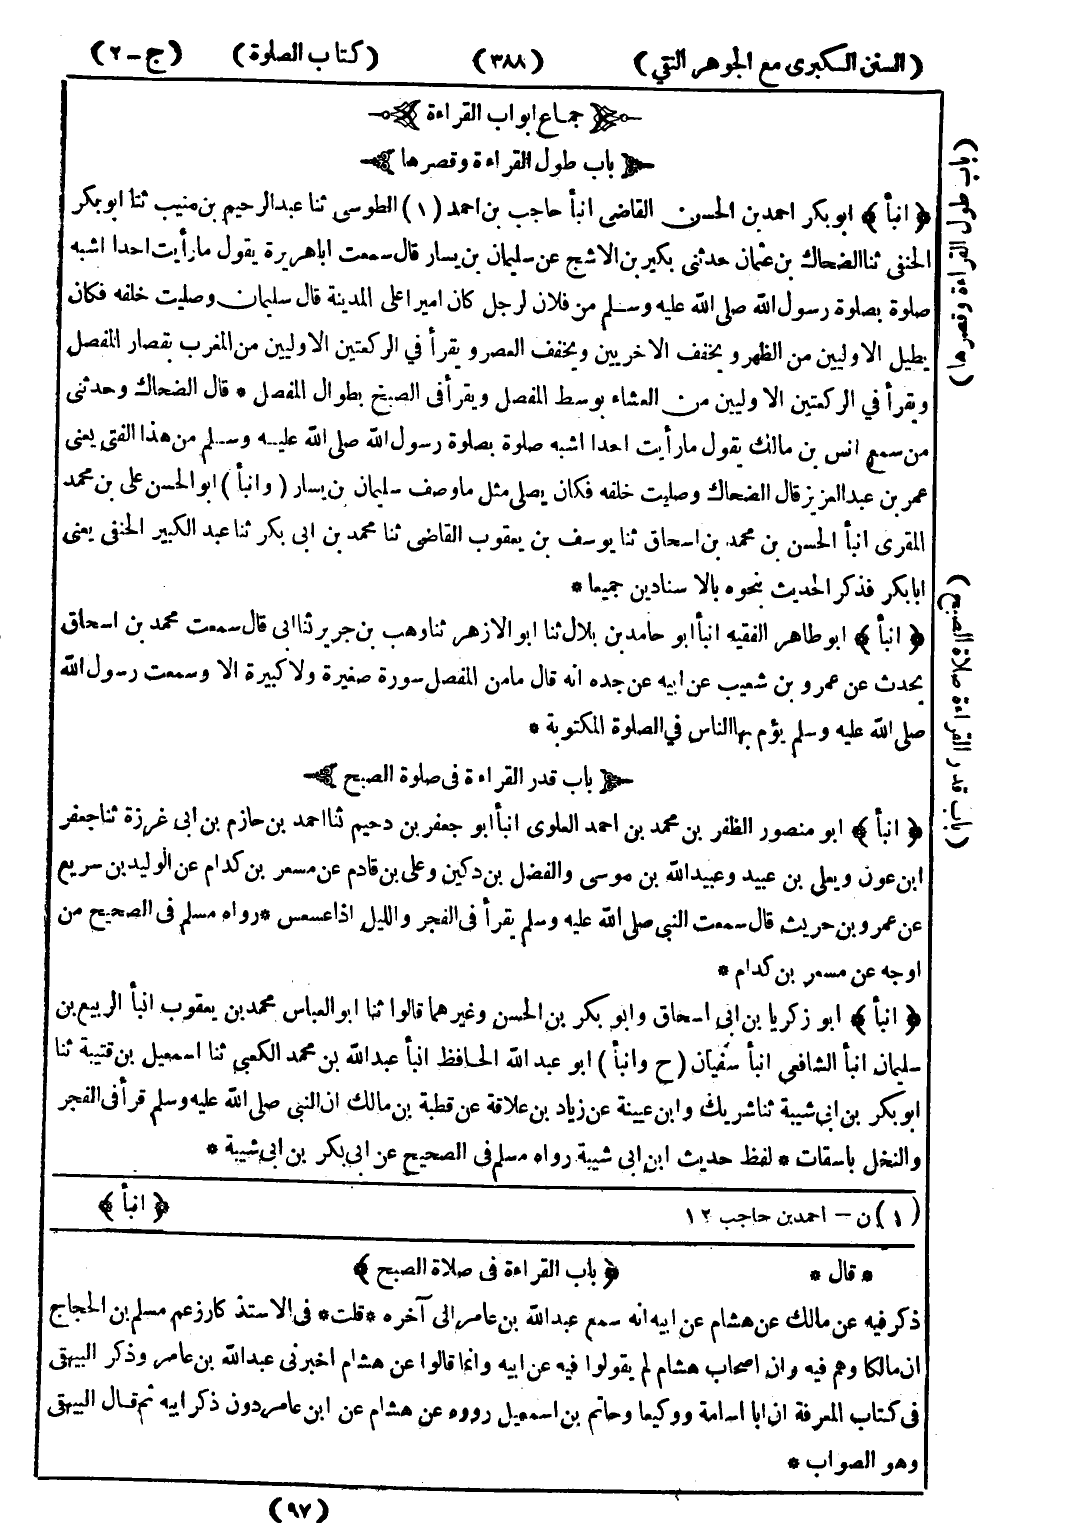 (السنن الكبرى مع الجوهر النقي) (٣٨٨) (كتاب الصلوة) (ج-٢)
جماع ابواب القراءة
باب طول القراءة وقصرها
﴿ انبأ ﴾ ابو بكر احمد بن الحسن القاضى انبأ حاجب بن احمد (١) الطوسى ثنا عبدالرحيم بن منيب ثنا ابوبكر
الحنفى ثنا الضحاك بن عثمان حدثنى بكير بن الاشج عن سليمان بن يسار قال سمعت اباهريرة يقول مارأيت احدا اشبه
صلوة بصلوة رسول الله صلى الله عليه وسلم من فلان لرجل كان اميرا على المدينة قال سليمان وصليت خلفه فكان
يطيل الاوليين من الظهر و يخفف الاخريين ويخفف العصر و يقرأ في الركعتين الاوليين من المغرب بقصار المفصل
ويقرأ في الركعتين الاوليين من العشاء بوسط المفصل ويقرأ فى الصبح بطوال المفصل * قال الضحاك وحدثنى
من سمع انس بن مالك يقول مارأيت احدا اشبه صلوة بصلوة رسول الله صلى الله عليه وسلم من هذا الفتى يعنى
عمر بن عبدالعزيز قال الضحاك وصليت خلفه فكان يصلى مثل ماوصف سليمان بن يسار (وانبأ) ابو الحسن على بن محمد
المقرى انبأ الحسن بن محمد بن اسحاق ثنا يوسف بن يعقوب القاضى ثنا محمد بن ابى بكر ثنا عبد الكبير الحنفى يعنى
ابابكر فذكر الحديث بنحوه بالاسنادين جميعا *
﴿ انبأ ﴾ ابوطاهر الفقيه انبأ ابو حامد بن بلال ثنا ابو الازهر ثنا وهب بن جرير ثنا ابى قال سمعت محمد بن اسحاق
يحدث عن عمرو بن شعيب عن ابيه عن جده انه قال مامن المفصل سورة صغيرة ولا كبيرة الا وسمعت رسول الله
صلى الله عليه وسلم يؤم بها الناس في الصلوة المكتوبة *
باب قدر القراءة فى صلوة الصبح
﴿ انبأ ﴾ ابو منصور الظفر بن محمد بن احمد العلوى انبأ ابو جعفر بن دحيم ثنا احمد بن حازم بن ابى غرزة ثنا جعفر
ابن عون ويعلى بن عبيد وعبيدالله بن موسى والفضل بن دكين وعلى بن قادم عن مسعر بن كدام عن الوليد بن سريع
عن عمرو بن حريث قال سمعت النبى صلى الله عليه وسلم يقرأ فى الفجر والليل اذا عسعس * رواه مسلم فى الصحيح من
اوجه عن مسعر بن كدام *
﴿ انبأ ﴾ ابو زكريا بن ابى اسحاق وابو بكر بن الحسن وغيرهما قالوا ثنا ابو العباس محمد بن يعقوب انبأ الربيع بن
سليمان انبأ الشافعى انبأ سفيان (ح وانبأ) ابو عبد الله الحافظ انبأ عبدالله بن محمد الكعبى ثنا اسمعيل بن قتيبة ثنا
ابوبكر بن ابى شيبة ثنا شريك وابن عيينة عن زياد بن علاقة عن قطبة بن مالك ان النبى صلى الله عليه وسلم قرأ فى الفجر
والنخل باسقات * لفظ حديث ابن ابى شيبة رواه مسلم فى الصحيح عن ابى بكر بن ابى شيبة *
(١) ن - احمد بن حاجب ١٢
﴿ انبأ ﴾
* قال * ﴿ باب القراءة فى صلاة الصبح ﴾
ذكر فيه عن مالك عن هشام عن ابيه انه سمع عبدالله بن عامر الى آخره * قلت * فى الاستذكار زعم مسلم بن الحجاج
ان مالكا وهم فيه وان اصحاب هشام لم يقولوا فيه عن ابيه وانما قالوا عن هشام اخبرنى عبدالله بن عامر وذكر البيهقى
فى كتاب المعرفة ان ابا اسامة ووكيعا وحاتم بن اسمعيل رووه عن هشام عن ابن عامر دون ذكر ابيه ثم قال البيهقى
وهو الصواب *
(باب طول القراءة وقصرها)
(باب قدر القراءة صلاة الصبح)
(٩٧)